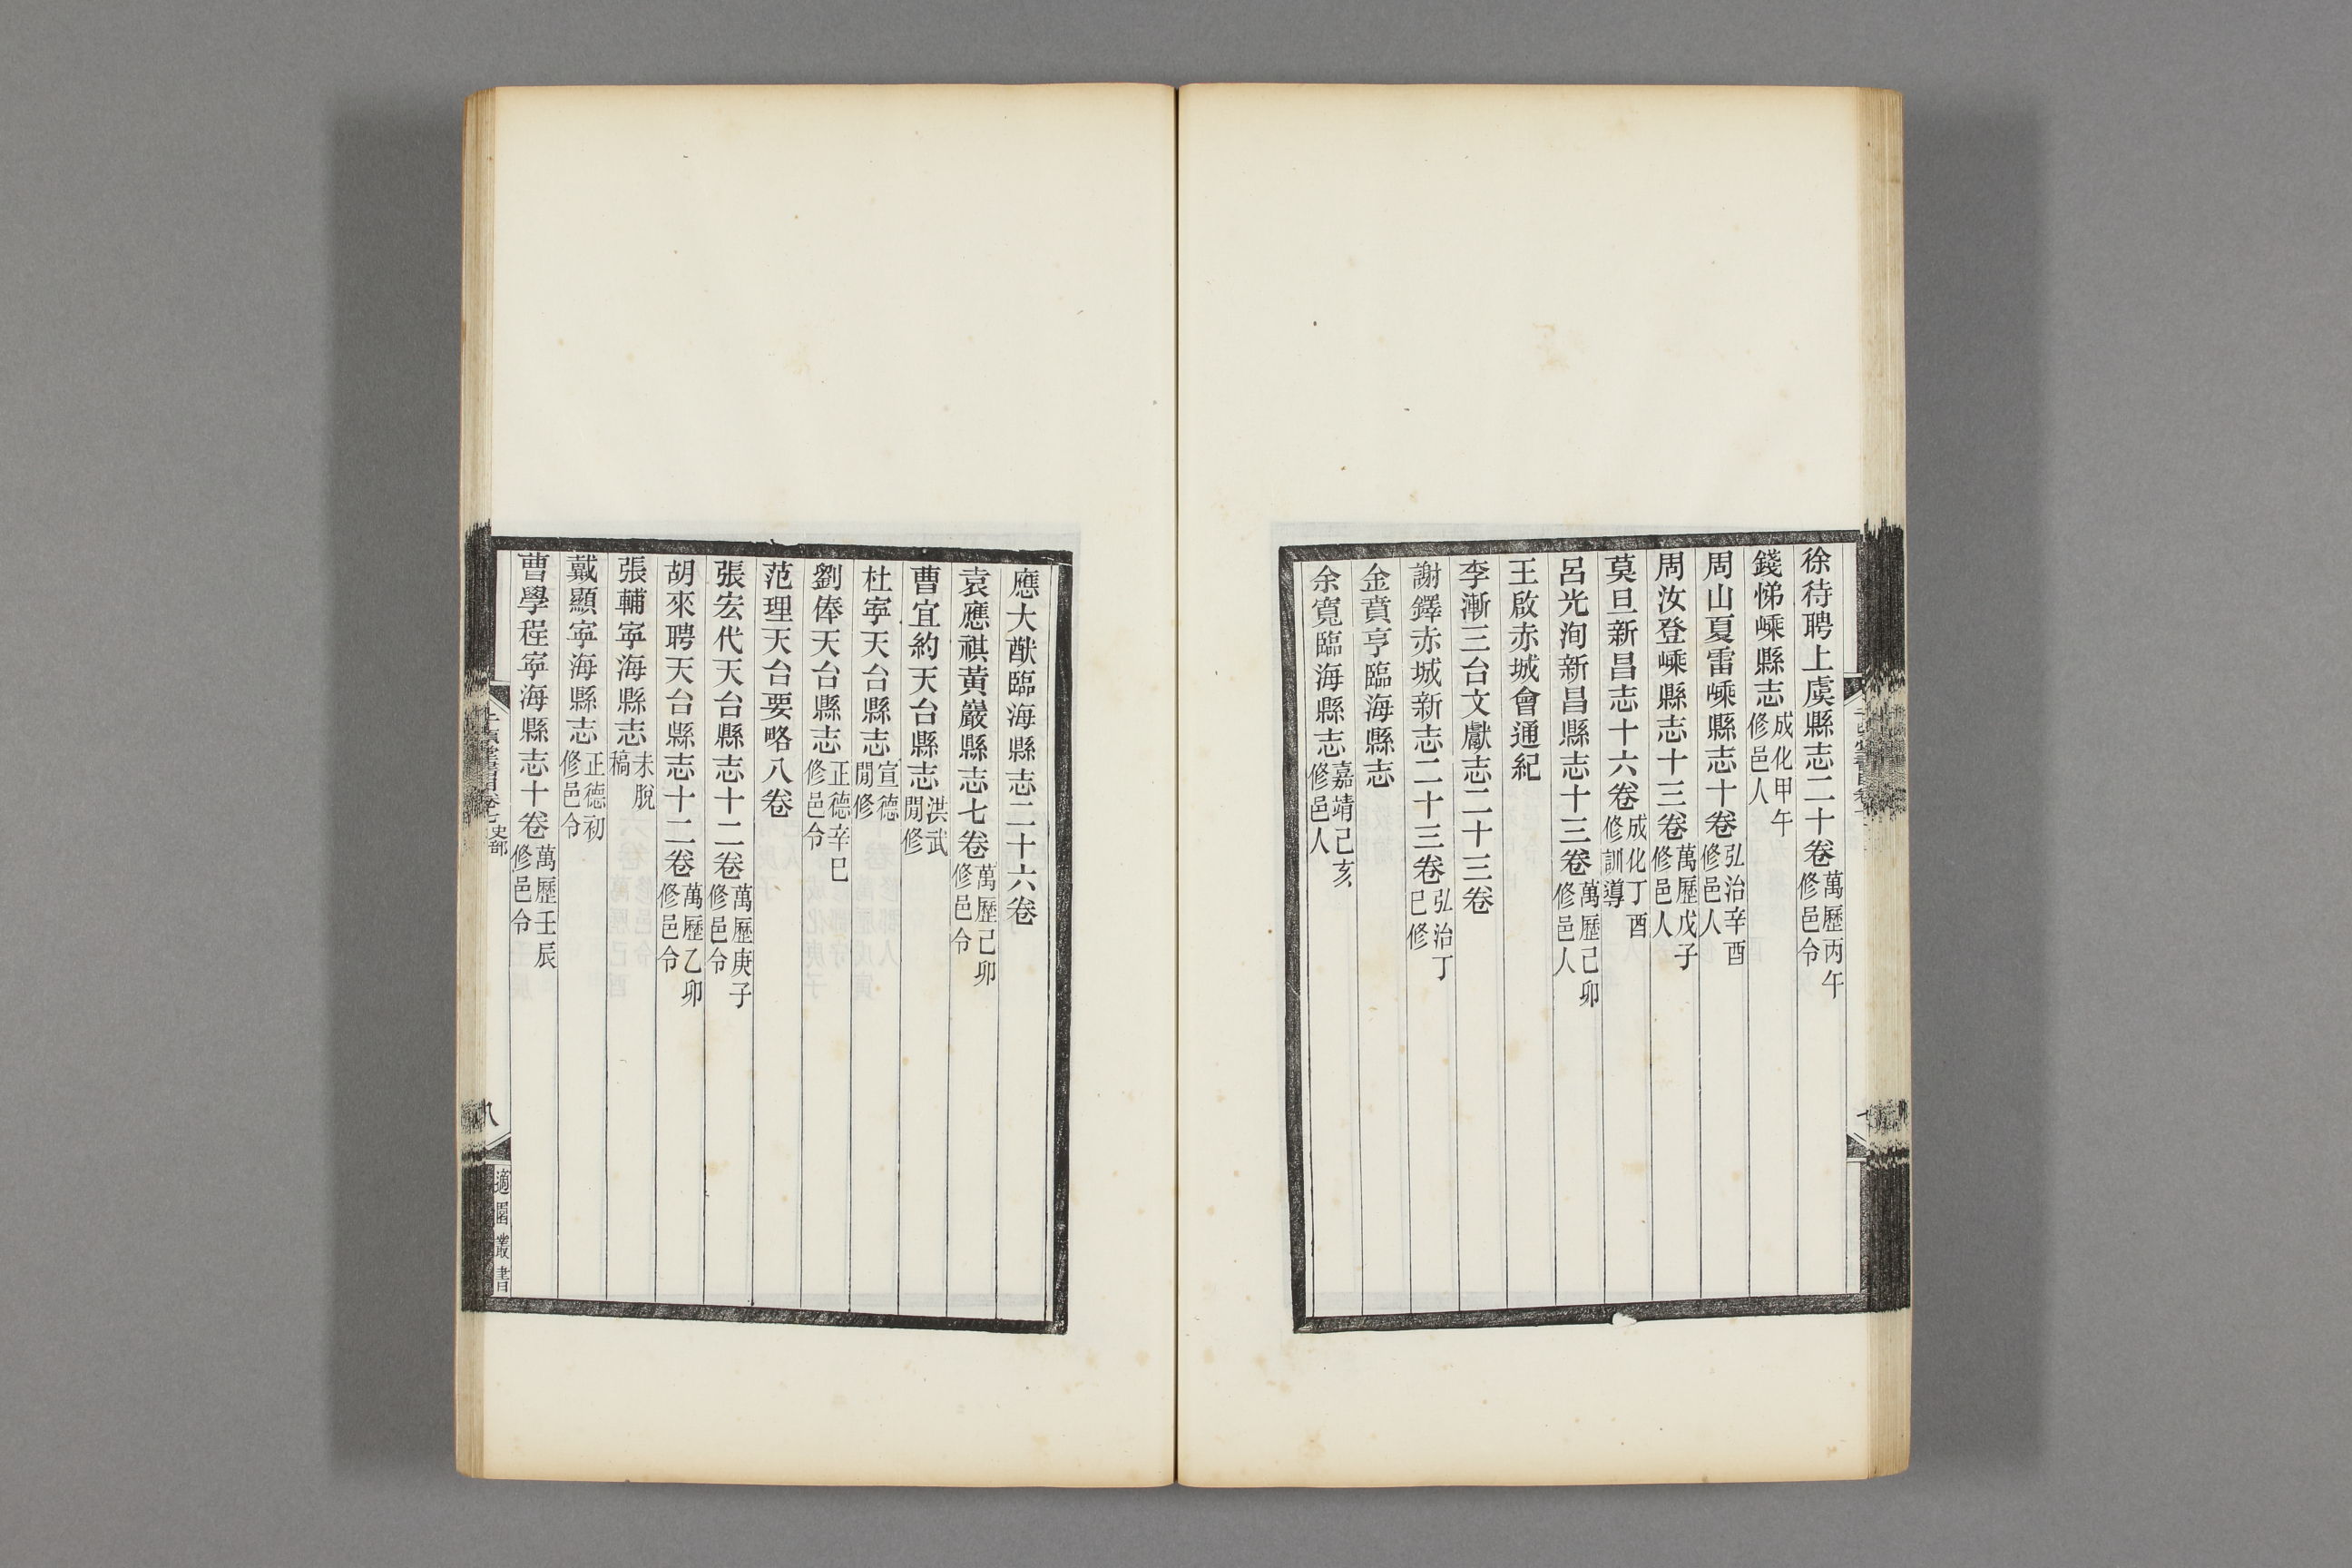 徐待聘上虞縣志二十卷萬歷丙午修邑令
錢悌嵊縣志成化甲午修邑人
周山夏雷嵊縣志十卷弘治辛酉修邑人
周汝登嵊縣志十三卷萬歷戊子修邑人
莫旦新昌志十六卷成化丁酉修訓導
呂光洵新昌縣志十三卷萬歷己卯修邑人
王啟赤城會通紀
李漸三台文獻志二十三卷
謝鐸赤城新志二十三卷弘治丁巳修
金賁亨臨海縣志
余寬臨海縣志嘉靖己亥修邑人
應大猷臨海縣志二十六卷
袁應祺黃巖縣志七卷萬歷己卯修邑令
曹宜約天台縣志洪武閒修
杜寧天台縣志宣德閒修
劉俸天台縣志正德辛巳修邑令
范理天台要略八卷
張宏代天台縣志十二卷萬歷庚子修邑令
胡來聘天台縣志十二卷萬歷乙卯修邑令
張輔寧海縣志未脫稿
戴顯寧海縣志正德初修邑令
曹學程寧海縣志十卷萬歷壬辰修邑令
千頃堂書目卷七史部
八
適園叢書